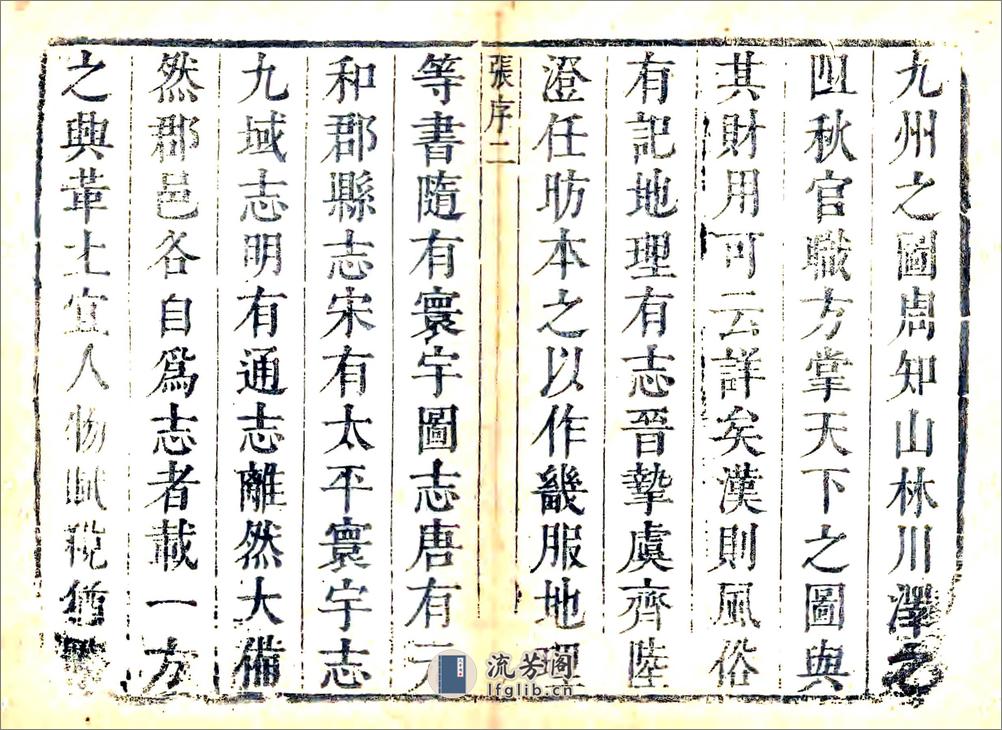 九州之圖周知山林川澤之
四秋官職方掌天下之圖與
其財用可云詳矣漢則風俗
有記地理有志晉摯虞齊陸
澄任昉本之以作畿服地理
張序二
等書隨有寰宇圖志唐有元
和郡縣志宋有太平寰宇志
九域志明有通志離然大備
然郡邑各自爲志者載一方
之典革土宜人物賦稅猶
流芳阁
lfglib.cn